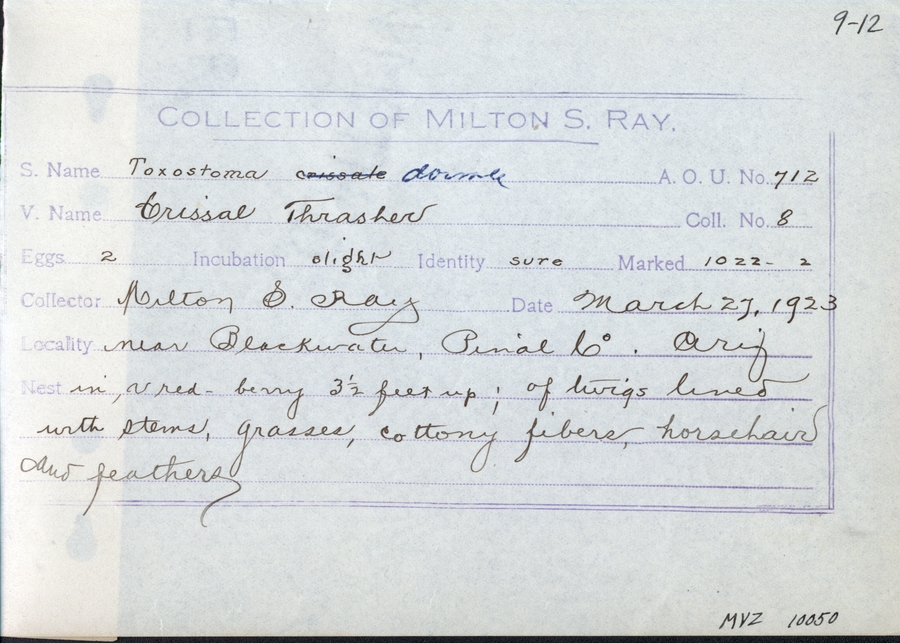 9-12
COLLECTION OF MILTON S. RAY.
S. Name Toxostoma crissale dorsale A. O. U. No. 712
V. Name Crissal Thrasher Coll. No. 8
Eggs 2 Incubation slight Identity sure Marked 1022-2
Collector Milton S. Ray Date March 27, 1923
Locality near Blackwater, Pinal Co. Ariz
Nest in red-berry 3½ feet up; of twigs lined
with stems, grasses, cottony fibers, horsehair
and feathers
MVZ 10050